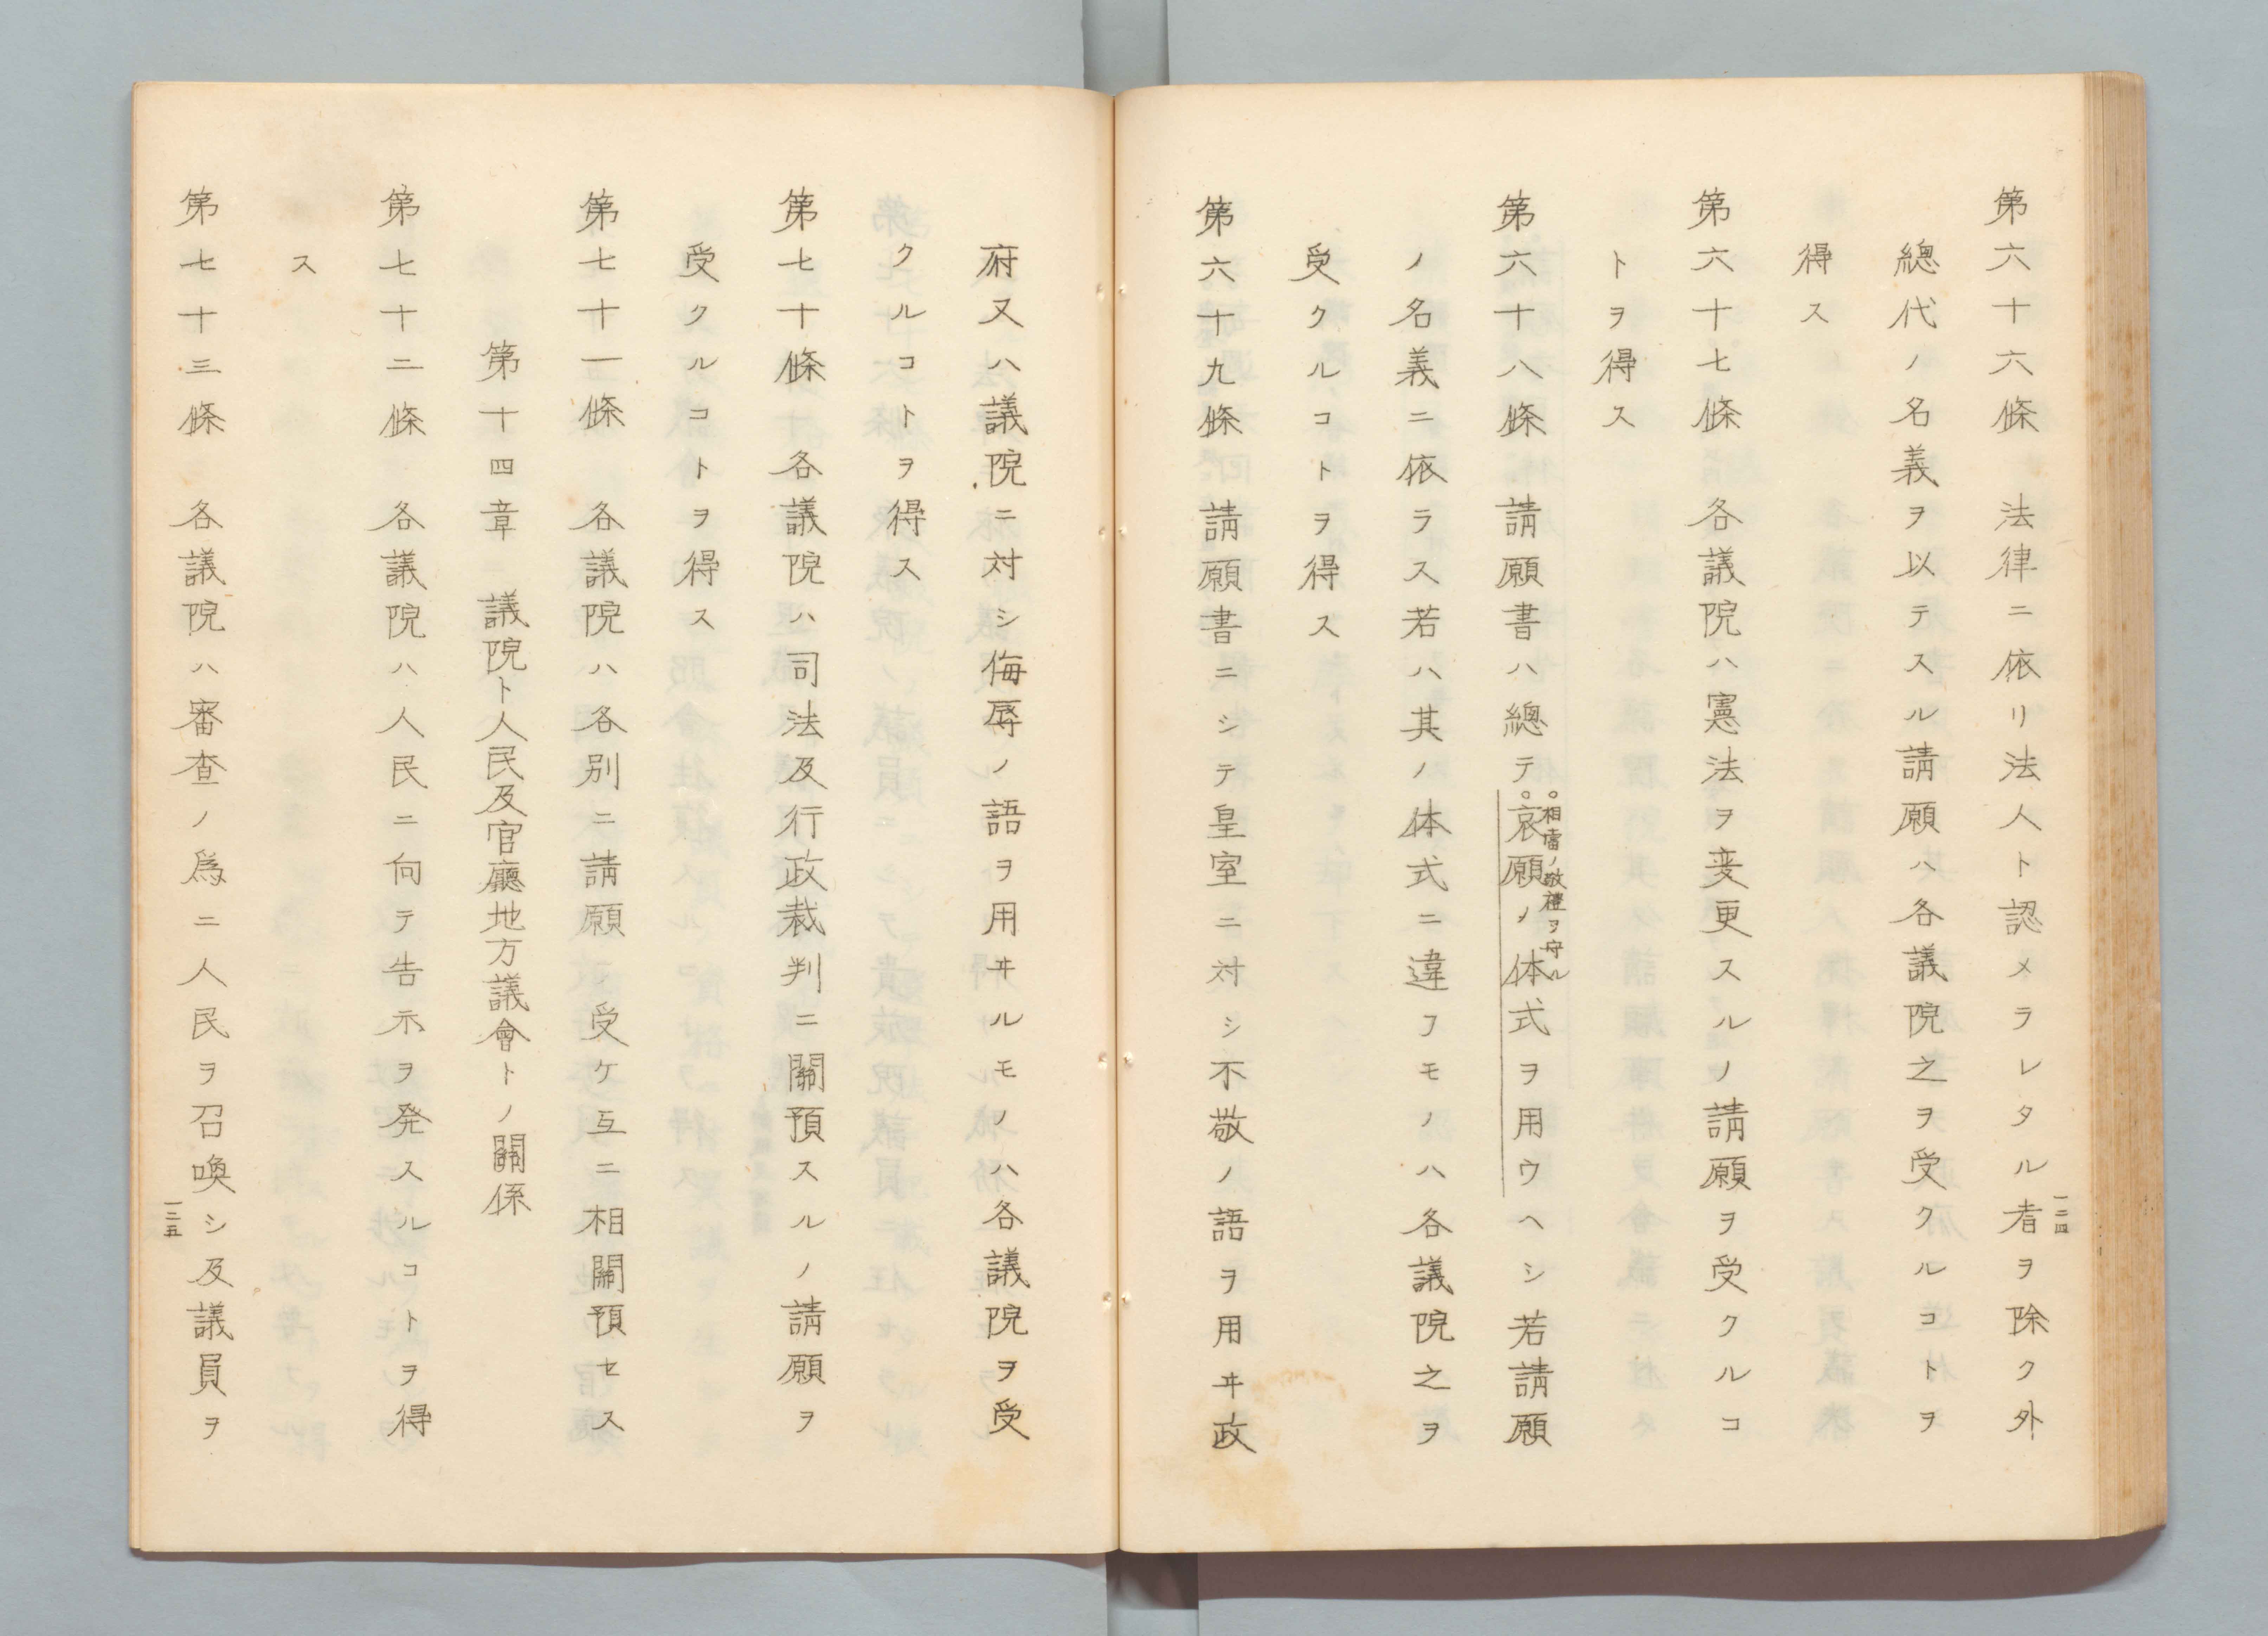 第六十六條 法律ニ依リ法人ト認メラレタル者ヲ除ク外
總代ノ名義ヲ以テスル請願ハ各議院之ヲ受クルコトヲ
得ス
第六十七條 各議院ハ憲法ヲ変更スルノ請願ヲ受クルコ
トヲ得ス
第六十八條 請願書ハ總テ。哀願ノ体式ヲ用ウヘシ若請願
。相當ノ敬禮ヲ守ル
ノ名義ニ依ラス若ハ其ノ体式ニ違フモノハ各議院之ヲ
受クルコトヲ得ス
第六十九條 請願書ニシテ皇室ニ対シ不敬ノ語ヲ用ヰ政
一二四
府又ハ議院ニ対シ侮辱ノ語ヲ用ヰルモノハ各議院ヲ受
クルコトヲ得ス
第七十條 各議院ハ司法及行政裁判ニ關預スルノ請願ヲ
受クルコトヲ得ス
第七十一條 各議院ハ各別ニ請願ヲ受ケ互ニ相關預セス
第十四章 議院ト人民及官廳地方議會トノ關係
第七十二條 各議院ハ人民ニ向テ告示ヲ発スルコトヲ得
ス
第七十三條 各議院ハ審査ノ爲ニ人民ヲ召喚シ及議員ヲ
一二五